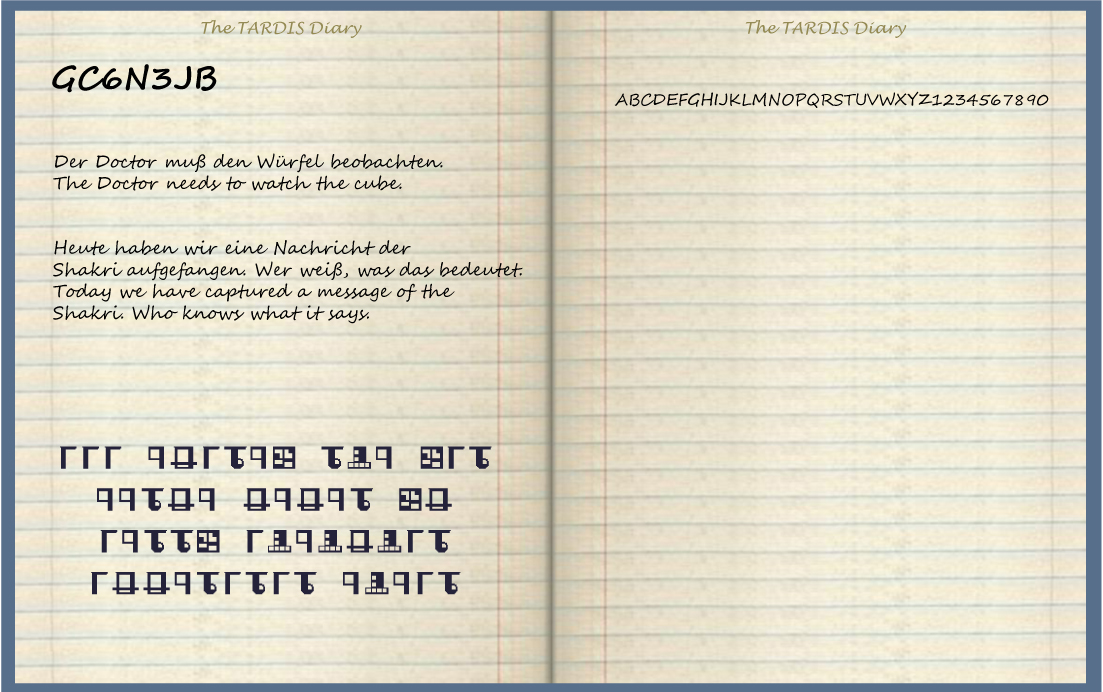 The TARDIS Diary
GC6N3JB
Der Doctor muß den Würfel beobachten.
The Doctor needs to watch the cube.
Heute haben wir eine Nachricht der
Shakri aufgefangen. Wer weiß, was das bedeutet.
Today we have captured a message of the
Shakri. Who knows what it says.
The TARDIS Diary
ABCDEFGHIJKLMNOPQRSTUVWXYZ1234567890